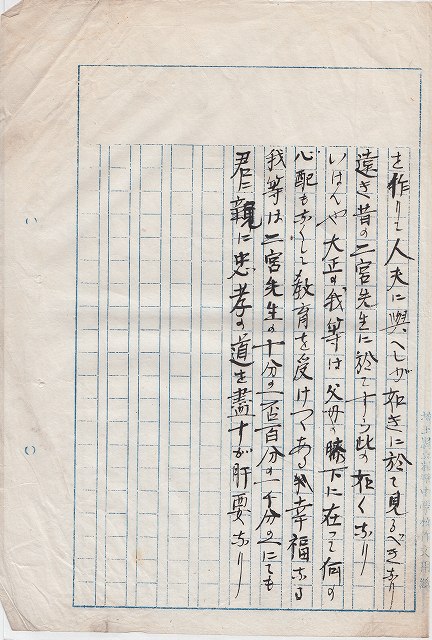 を作りて人夫に與へしが如きに於て見るべきなり
遠き昔の二宮先生に於てすら此の如くなり
いはんや大正の我等は父母の膝下に在つて何の
心配もなくして教育を受けつゝある幸福なる
我等は二宮先生の十分の一否百分の一千分の一にても
君に親に忠孝の道を盡すが肝要なり